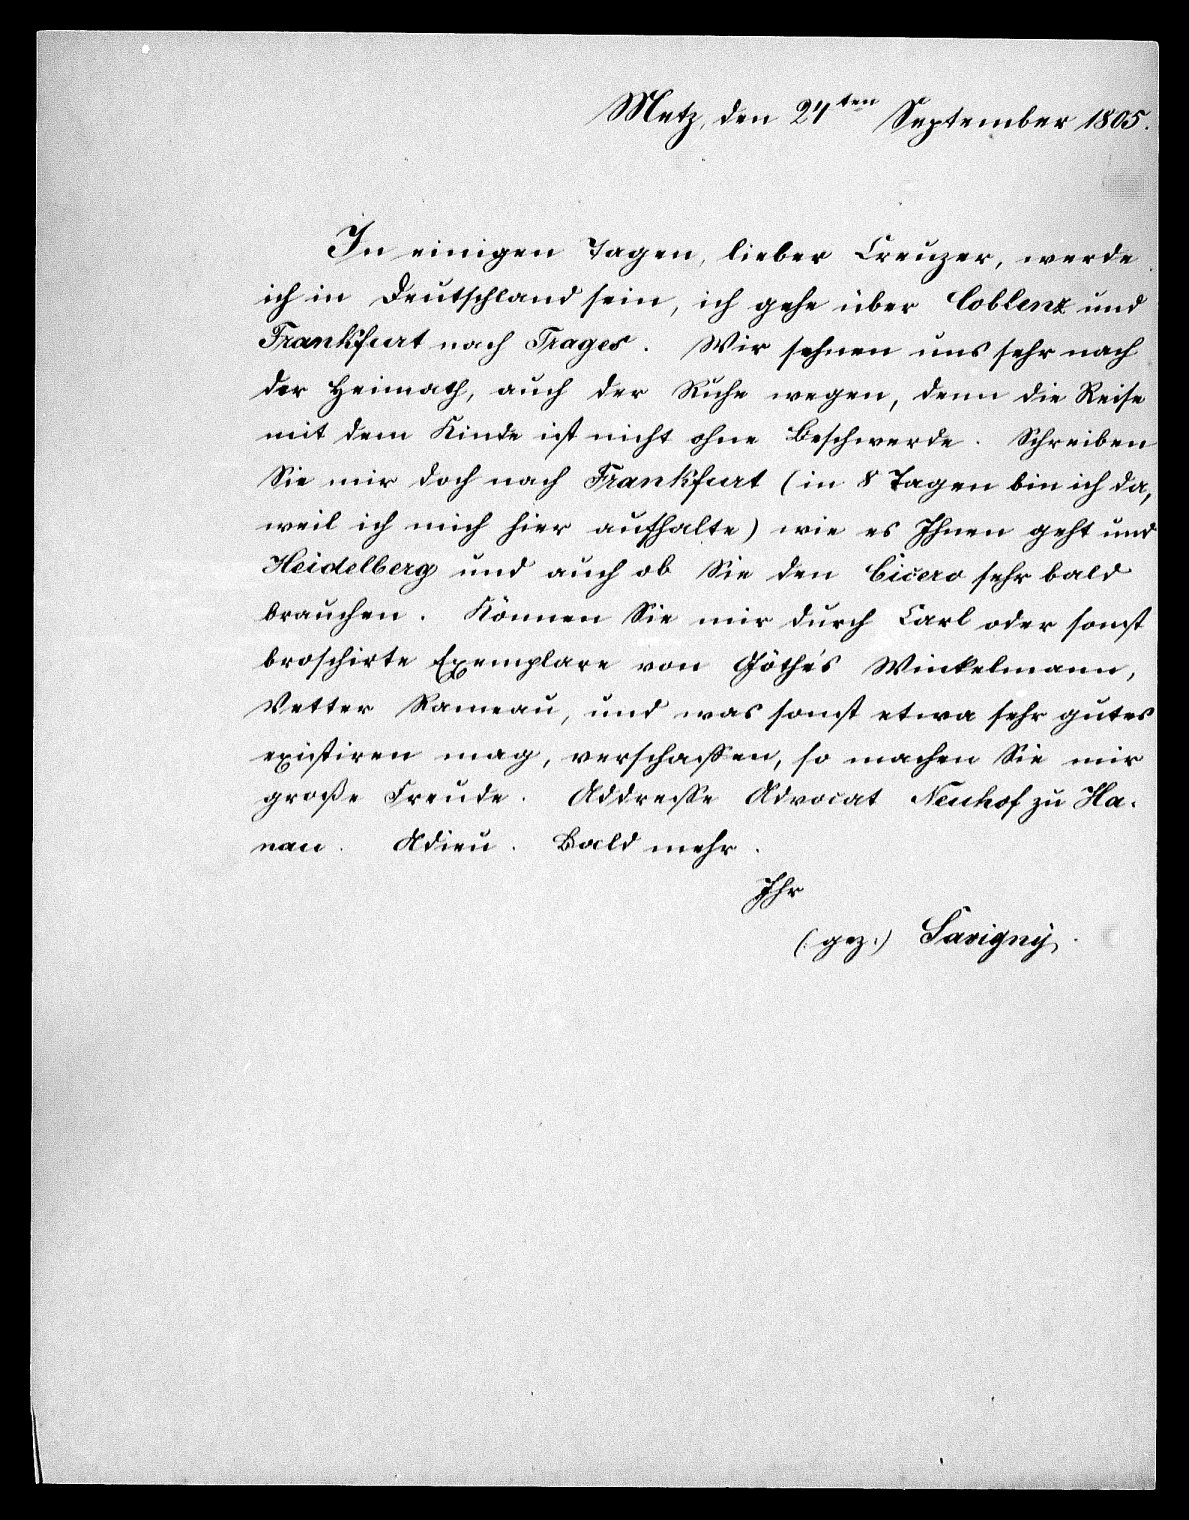 Metz, den 24ten September 1805.
In einigen Tagen, lieber Creuzer, werde
ich in Deutschland sein, ich gehe über Coblenz und
Frankfurt nach Trages. Wir sehnen uns sehr nach
der Heimath, auch der Ruhe wegen, denn die Reise
mit dem Kinde ist nicht ohne Beschwerde. Schreiben
Sie mir doch nach Frankfurt (in 8 Tagen bin ich da,
weil ich mich hier aufhalte) wie es Ihnen geht und
Heidelberg und auch ob Sie den Cicero sehr bald
brauchen. Können Sie mir durch Carl oder sonst
broschirte Exemplare von Göthe's Winkelmann,
Vetter Rameau, und was sonst etwa sehr gutes
existiren mag, verschaffen, so machen Sie mir
große Freude. Addresse Advocat Neuhof zu Ha-
nau. Adieu. Bald mehr.
Ihr
(:gez:) Savigny.